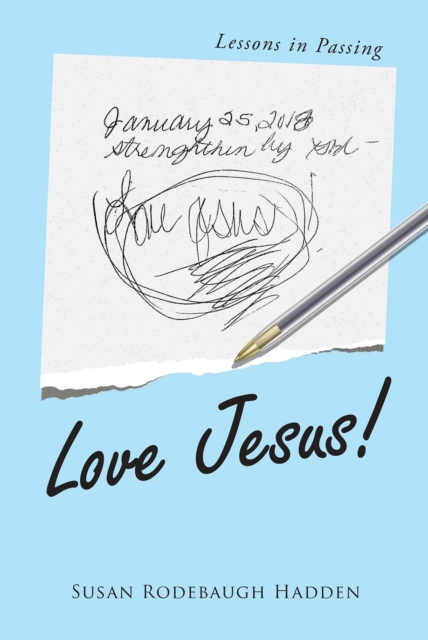 Lessons in Passing
January 25, 2018
strengthin by
Love Jesus
Love Jesus!
Susan Rodebaugh Hadden